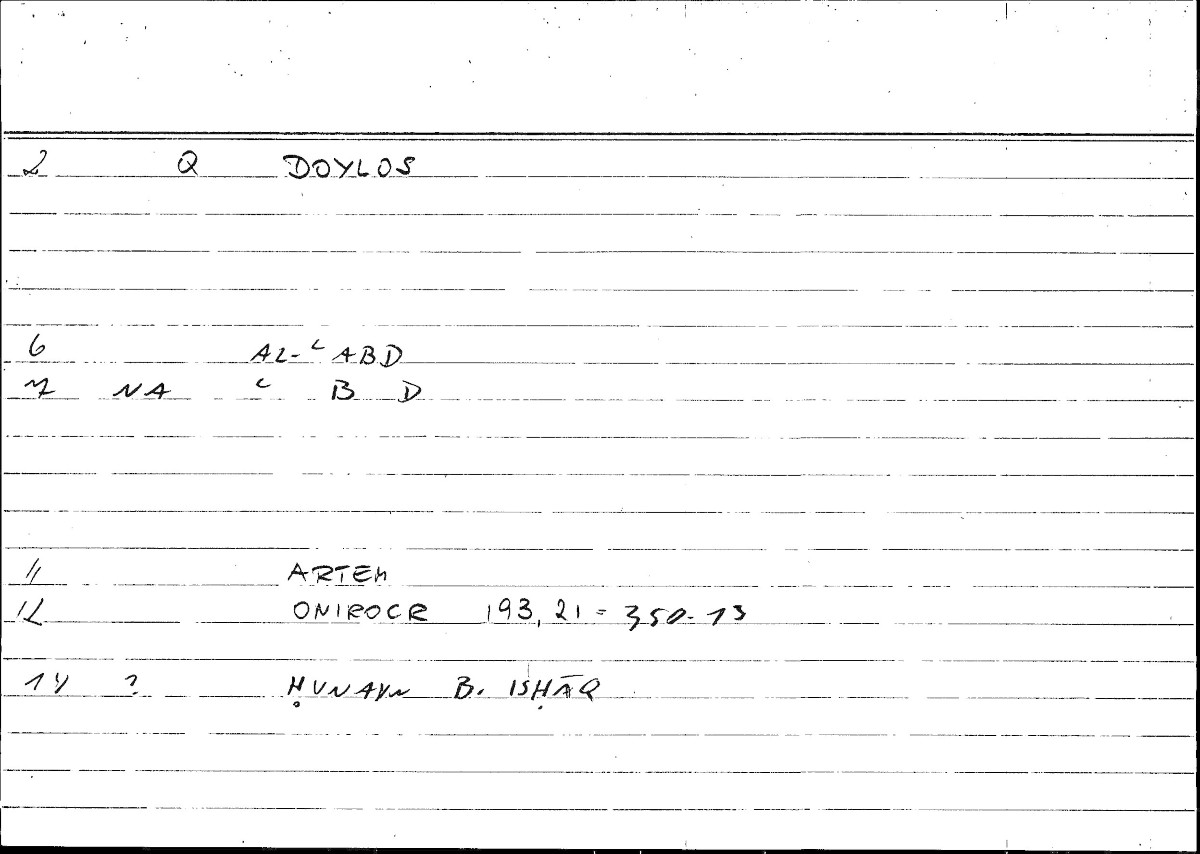 2 Q DOYLOS
6 AL-ʿABD
7 NA ʿ B D
11 ARTEM
12 ONIROCR 193, 21 = 350-13
14 ? ḤUNAYN B. ISḤĀQ